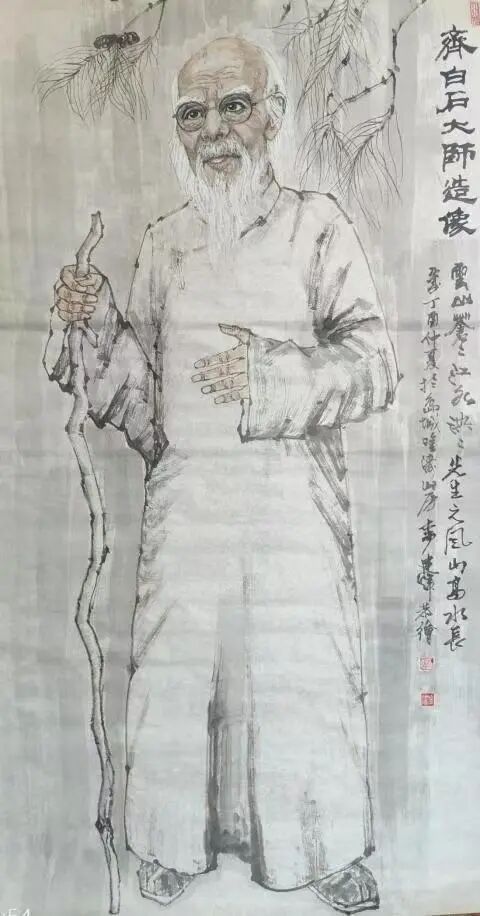 齊白石大師造像
雲山蒼〻江水泱〻先生之風山高水長
歲丁酉仲夏於島城 山房 恭繪